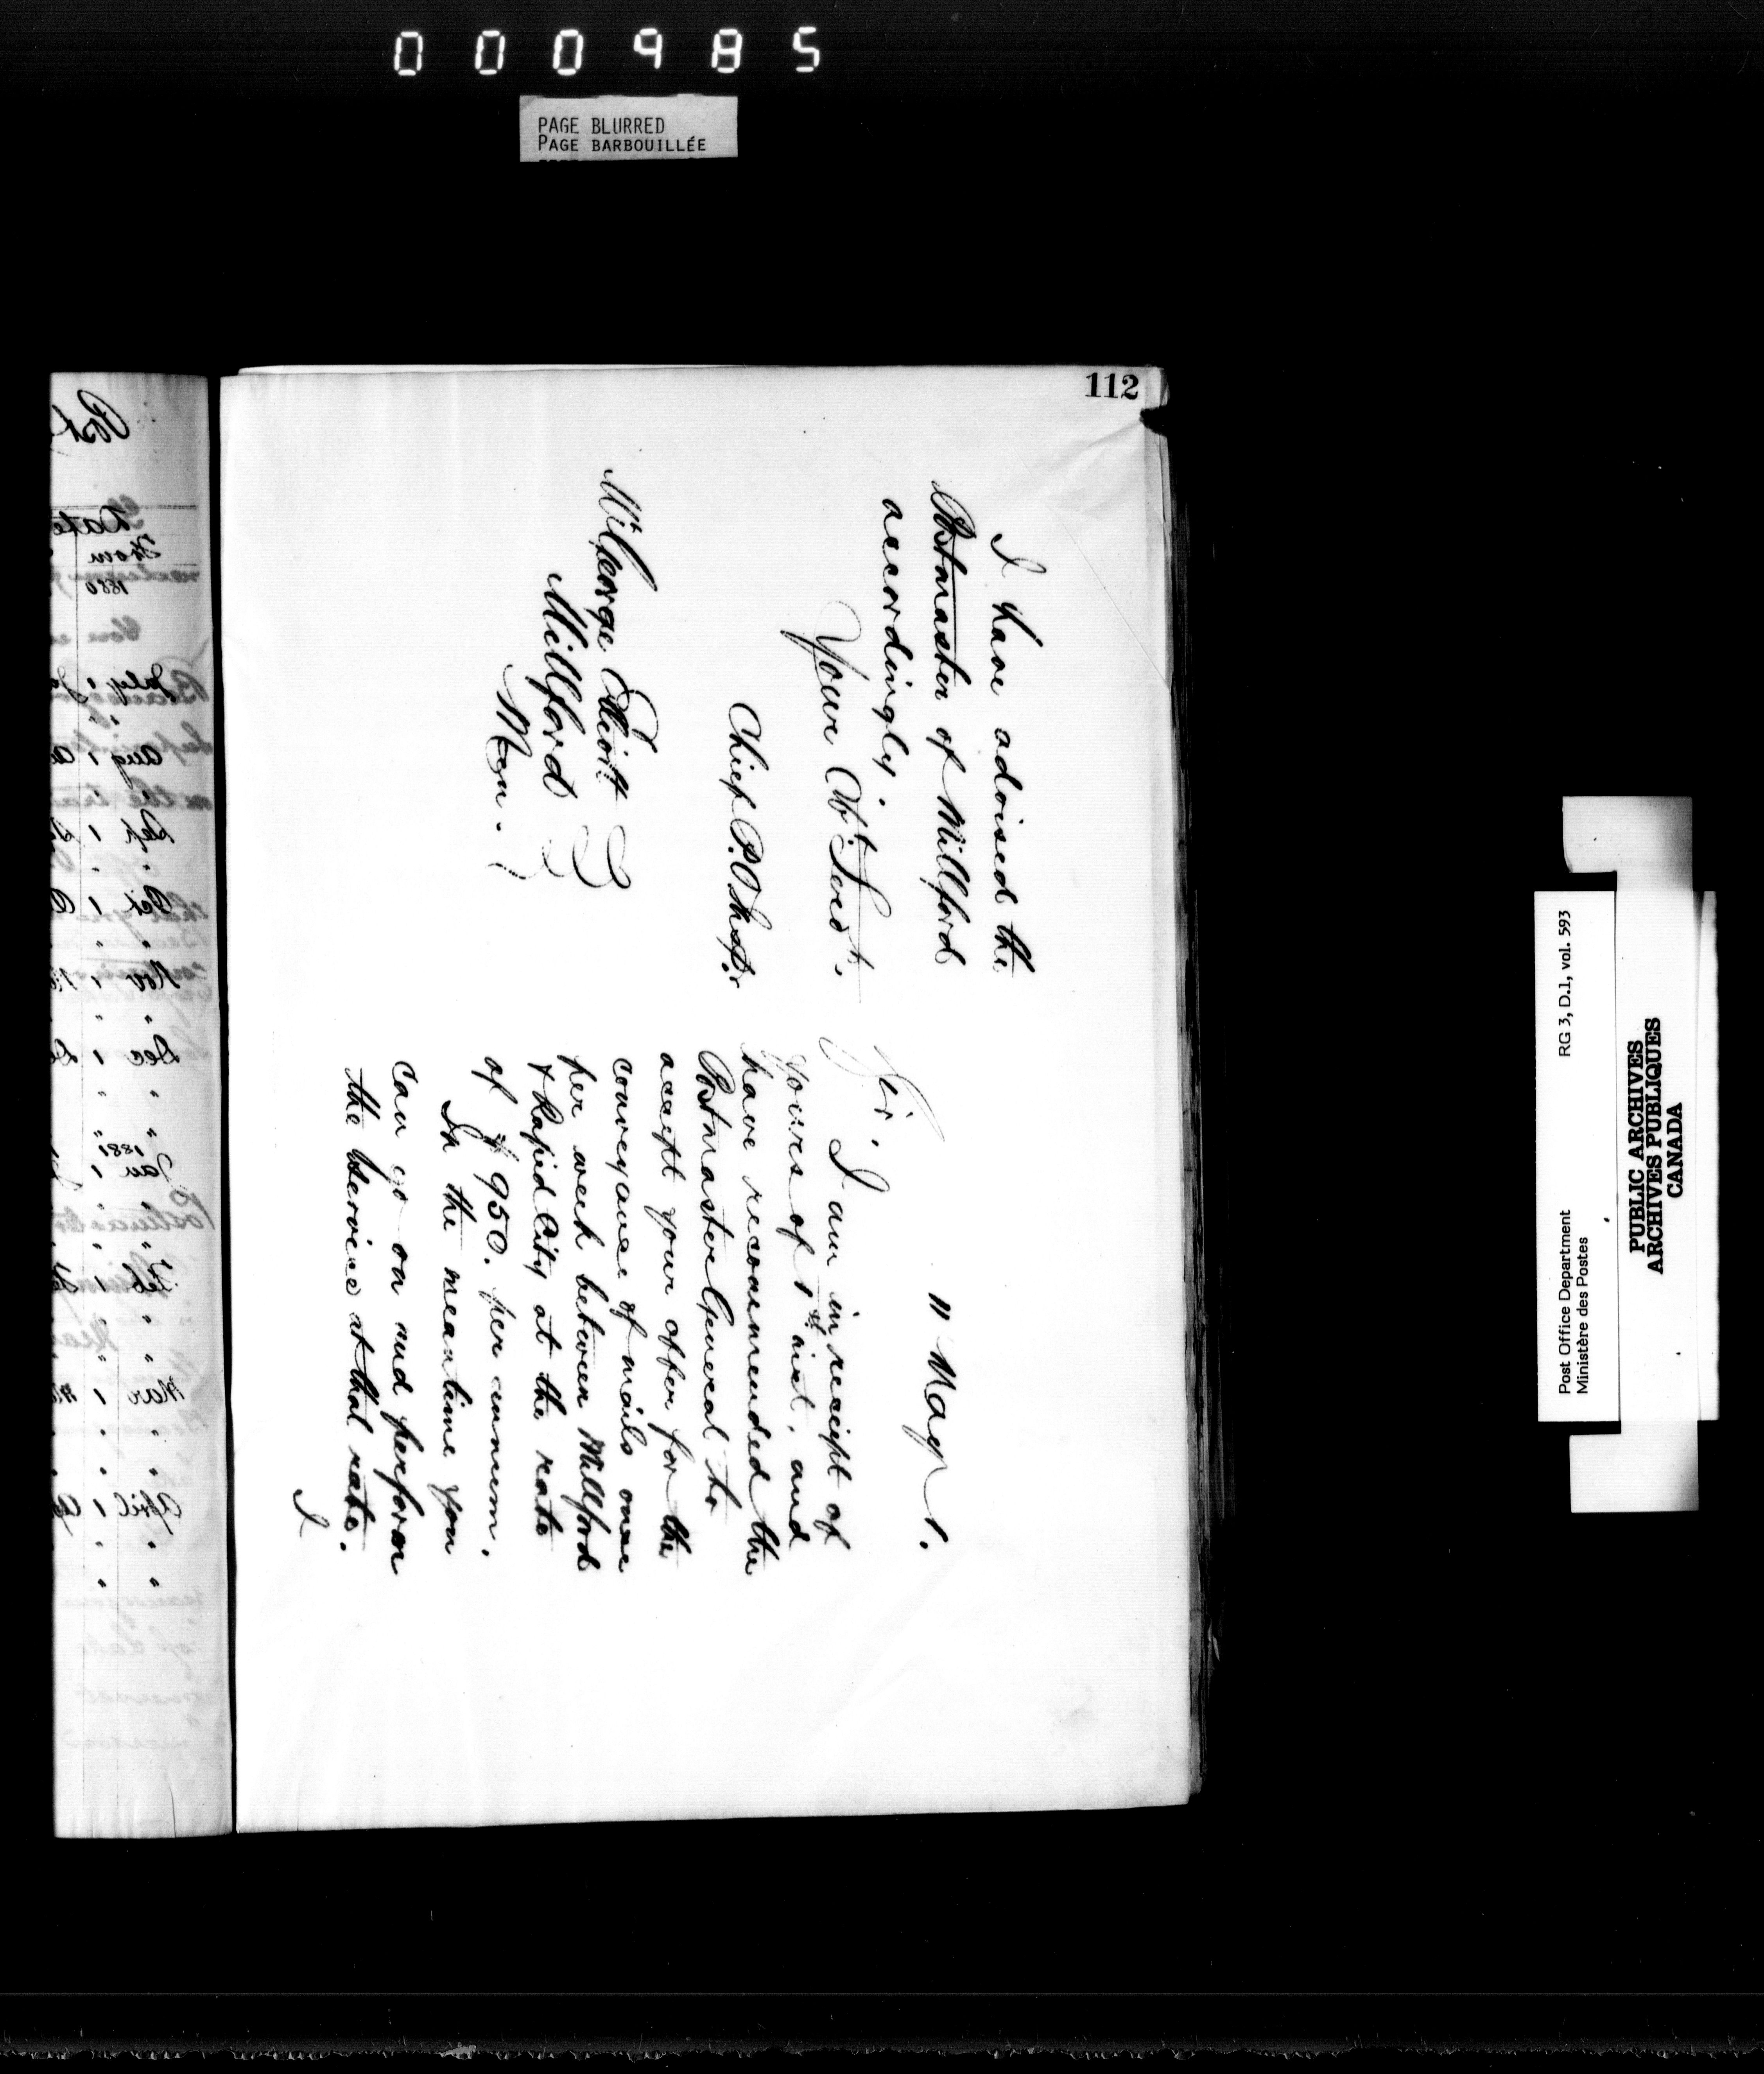 000985
PAGE BLURRED
PAGE BARBOUILLÉE
112
11 May 1.
Sir,
I am in receipt of
yours of 1st inst. and
have recommended the
Postmaster General to
accept your offer for the
conveyance of mails once
per week between Millford
& Rapid City at the rate
of $950. per annum.
In the meantime you
can go on and perform
the service at that rate.
I
I have advised the
Postmaster of Millford
accordingly.
Your Obt. Servt.
Chief P.O. Inspr
Mr George Elliott
Millford
Man.
Post
Date
From
1880
July 1
Aug 1
Sept 1
Oct 1
Nov 1
Dec 1
1881
Jan 1
Feb 1
Mar 1
April 1
Post Office Department
Ministère des Postes
RG 3, D.1, vol. 593
PUBLIC ARCHIVES
ARCHIVES PUBLIQUES
CANADA